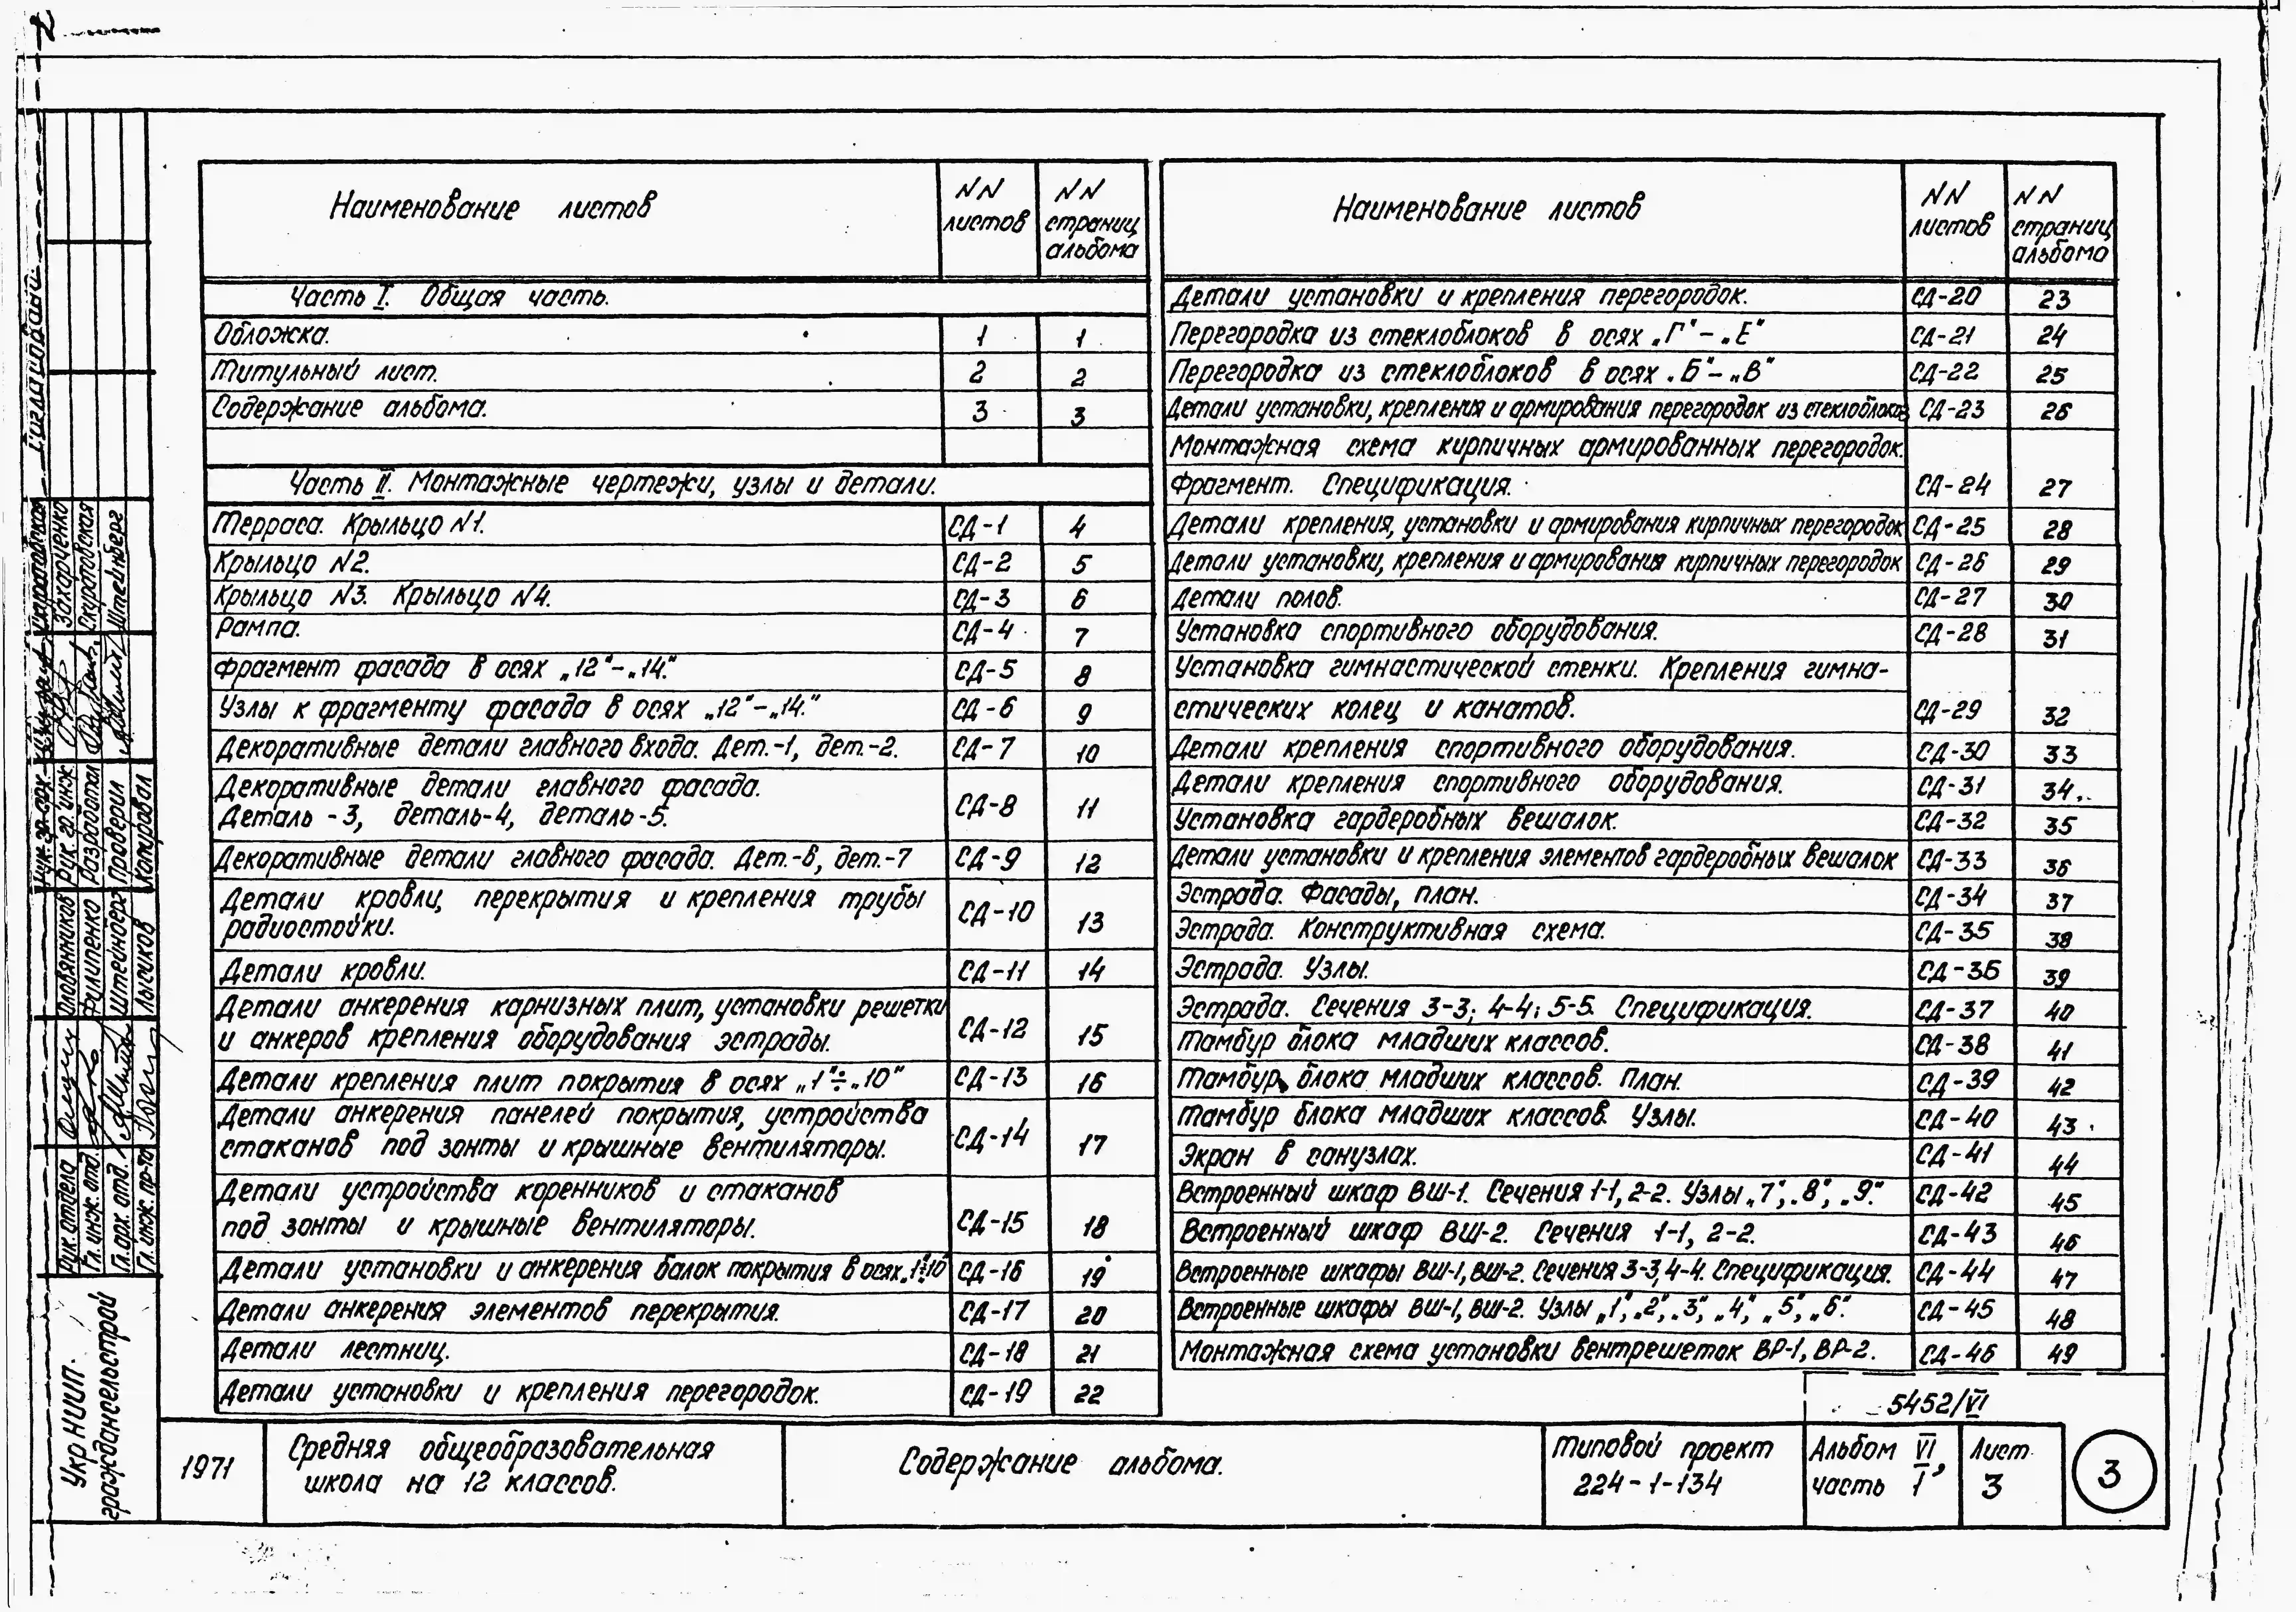 Наименование листов
NN листов
NN страниц альбома
Часть I. Общая часть.
Обложка. 1 1
Титульный лист. 2 2
Содержание альбома. 3 3
Часть II. Монтажные чертежи, узлы и детали.
Терраса. Крыльцо N1. СД-1 4
Крыльцо N2. СД-2 5
Крыльцо N3. Крыльцо N4. СД-3 6
Рампа. СД-4 7
Фрагмент фасада в осях „12"-„14." СД-5 8
Узлы к фрагменту фасада в осях „12"-„14." СД-6 9
Декоративные детали главного входа. Дет.-1, дет.-2. СД-7 10
Декоративные детали главного фасада.
Деталь-3, деталь-4, деталь-5. СД-8 11
Декоративные детали главного фасада. Дет.-6, дет.-7 СД-9 12
Детали кровли, перекрытия и крепления трубы
радиостойки. СД-10 13
Детали кровли. СД-11 14
Детали анкерения карнизных плит, установки решетки
и анкеров крепления оборудования эстрады. СД-12 15
Детали крепления плит покрытия в осях „1"÷„10" СД-13 16
Детали анкерения панелей покрытия, устройства
стаканов под зонты и крышные вентиляторы. СД-14 17
Детали устройства коренников и стаканов
под зонты и крышные вентиляторы. СД-15 18
Детали установки и анкерения балок покрытия в осях „1"÷„10" СД-16 19
Детали анкерения элементов перекрытия. СД-17 20
Детали лестниц. СД-18 21
Детали установки и крепления перегородок. СД-19 22
Наименование листов
NN листов
NN страниц альбома
Детали установки и крепления перегородок. СД-20 23
Перегородка из стеклоблоков в осях „Г"-„Е" СД-21 24
Перегородка из стеклоблоков в осях „Б"-„В" СД-22 25
Детали установки, крепления и армирования перегородок из стеклоблоков СД-23 26
Монтажная схема кирпичных армированных перегородок.
Фрагмент. Спецификация. СД-24 27
Детали крепления, установки и армирования кирпичных перегородок СД-25 28
Детали установки, крепления и армирования кирпичных перегородок СД-26 29
Детали полов. СД-27 30
Установка спортивного оборудования. СД-28 31
Установка гимнастической стенки. Крепления гимна-
стических колец и канатов. СД-29 32
Детали крепления спортивного оборудования. СД-30 33
Детали крепления спортивного оборудования. СД-31 34
Установка гардеробных вешалок. СД-32 35
Детали установки и крепления элементов гардеробных вешалок СД-33 36
Эстрада. Фасады, план. СД-34 37
Эстрада. Конструктивная схема. СД-35 38
Эстрада. Узлы. СД-36 39
Эстрада. Сечения 3-3; 4-4; 5-5. Спецификация. СД-37 40
Тамбур блока младших классов. СД-38 41
Тамбур блока младших классов. План. СД-39 42
Тамбур блока младших классов. Узлы. СД-40 43
Экран в санузлах. СД-41 44
Встроенный шкаф ВШ-1. Сечения 1-1, 2-2. Узлы „7", „8", „9." СД-42 45
Встроенный шкаф ВШ-2. Сечения 1-1, 2-2. СД-43 46
Встроенные шкафы ВШ-1, ВШ-2. Сечения 3-3, 4-4. Спецификация. СД-44 47
Встроенные шкафы ВШ-1, ВШ-2. Узлы „1", „2", „3", „4", „5", „6." СД-45 48
Монтажная схема установки вентрешеток ВР-1, ВР-2. СД-46 49
5452/VI
1971
Средняя общеобразовательная
школа на 12 классов.
Содержание альбома.
Типовой проект
224-1-134
Альбом VI,
часть I
Лист
3
3
Согласовано:
Захарченко
Скраговская
Штейнберг
Рук. гр. инж.
Разработал
Проверил
Копировал
Оловянников
Филипенко
Штейнберг
Лысиков
Рук. отдела
Гл. инж. отд.
Гл. арх. отд.
Гл. инж. пр-та
Укр НИИП-
граждансельстрой